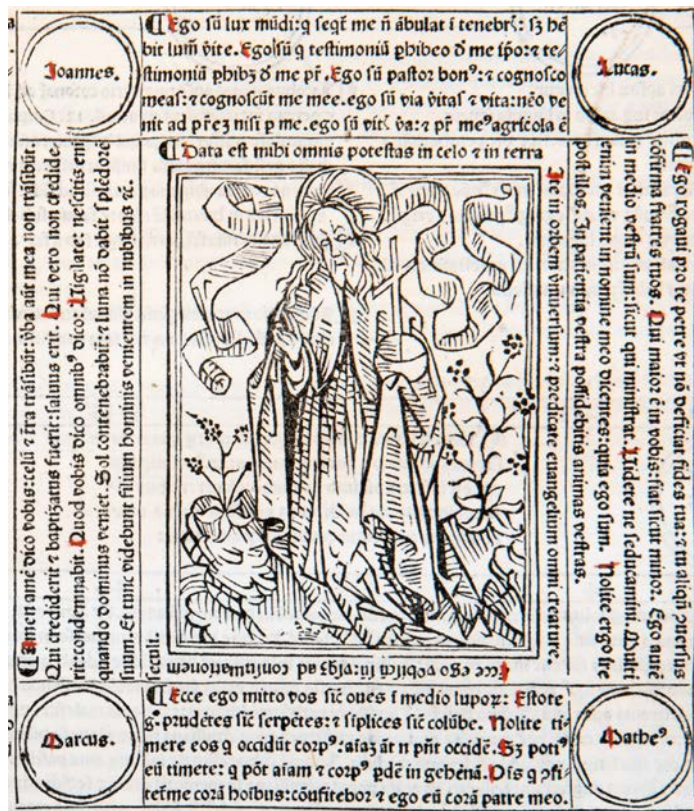 Joannes.
¶ Ego sū lux mūdi: q seqť me ñ ābulat ī tenebr̃: sʒ hē
bit lum̃ vite. Ego sū q testimoniū ꝑhibeo đ me ip̃o: ⁊ te⸗
stimoniū ꝑhibʒ đ me pr̃. Ego sū pastor bonꝰ: ⁊ cognosco
meas: ⁊ cognoscūt me mee. ego sū via v̄itas ⁊ vita: nēo ve
nit ad pr̃eʒ nisi ꝑ me. ego sū vit̃ v̄a: ⁊ pr̃ meꝰ agricola ē
Lucas.
¶ Data est mihi omnis potestas in celo ⁊ in terra
Ite in orbem vniuersum: ⁊ predicate euangelium omni creature.
Ecce ego vobiscū sū: vsqʒ ad consummationem
seculi.
¶ Amen amē dico vobis: celū ⁊ fra trāsibūt: v̓ba aūt mea non trāsibūt
Qui crediderit ⁊ baptiʒatus fuerit: saluus erit. Qui vero nō credide⸗
rit: condemnabit̃. Quod vobis dico omnibꝰ dico: Uigilate: nescitis eni
quando dominus veniet. Sol contenebrabit̃: ⁊ luna nō dabit splēdorē
suum. Et tunc videbunt filium hominis venientem in nubibus ⁊c̃.
¶ Ego rogaui pro te petre vt nō deficiat fides tua: ⁊ tu aliqñ ꝯuersus
cōfirma fratres tuos. Qui maior ē in vobis: fiat sicut minor. Ego autē
in medio vestrū sum: sicut qui ministrat. Uidere ne seducamini. Multi
enim venient in nomine meo dicentes: quia ego sum. Nolite ergo ire
post illos. In patientia vestra possidebitis animas vestras.
Marcus.
¶ Ecce ego mitto vos sic̄ oues ī medio lupoꝝ: Estote
g̊ prudētes sic̄ serpētes: ⁊ sīplices sic̄ colūbe. Nolite ti⸗
mere eos q̄ occidūt corpꝰ: aīaʒ āt ñ pñt occidē. Sʒ potiꝰ
eū timete: q põt aīam ⁊ corpꝰ ꝑdē in gehēnā. Ois q ꝯfi⸗
teb̃me corā hoībus: cōufitebor ⁊ ego eū corā patre meo.
Matheꝰ.